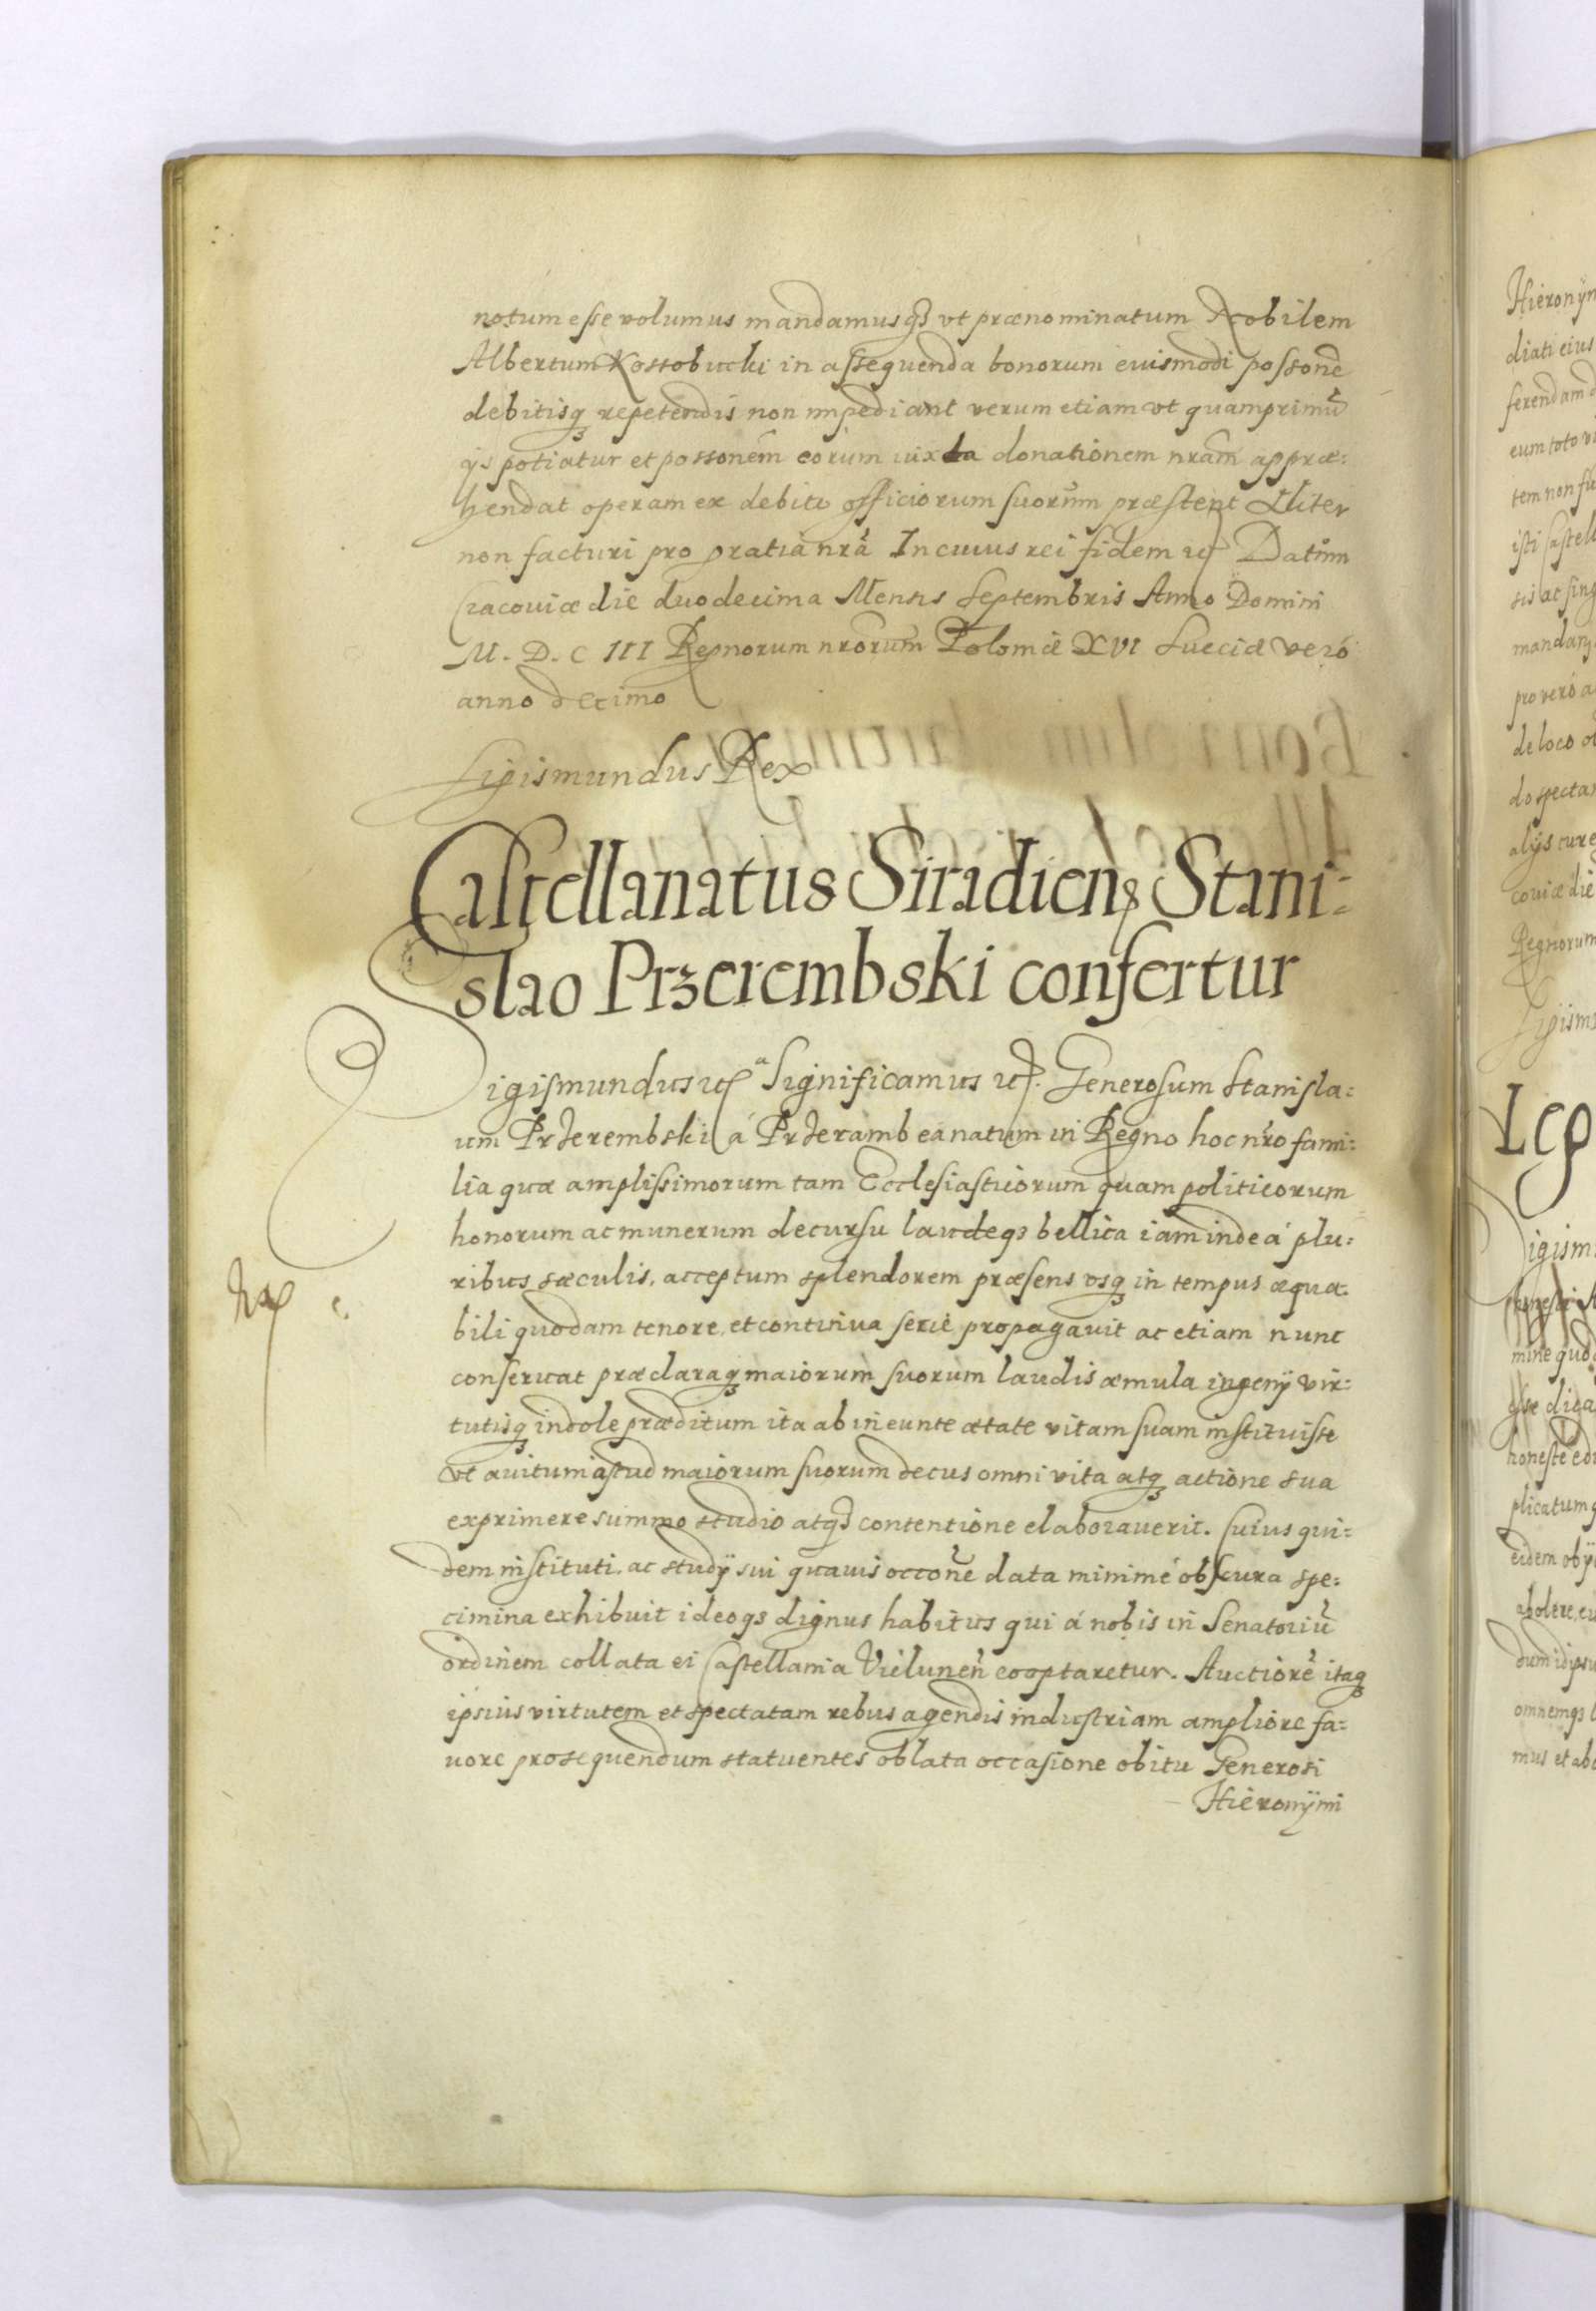 notum esse volumus mandamusqȝ vt prænominatum Nobilem
Albertum Kossobucki in assequenda bonorum euismodi possone
debitisqȝ repetendis non impediant verum etiam vt quamprimũ
ijs potiatur et possonem eorum iuxta donationem nram appræ:
hendat operam ex debito officiorum suorum præstent Aliter
non facturi pro gratia nra In cuius rei fidem etc Datum
Cracouiæ die duodecima Mensis Septembris Anno Domini
M. D. C III Regnorum nrorum Poloniæ XVI Sueciæ veró
anno decimo
Sigismundus Rex
Castellanatus Siradiens Stani:
slao Przerembski confertur
Sigismundus etc Significamus etc. Generosum Stanisla:
um Przerembski á Przeramb ea natum in Regno hoc nro fami:
lia quæ amplissimorum tam Ecclesiasticorum quam politicorum
honorum ac munerum decursu laudeqȝ bellica iam inde á plu:
ribus sæculis, acceptum splendorem præsens vsqȝ in tempus æqua:
bili quodam tenore, et continua serie propagauit ac etiam nunc
conseruat præclaraqȝ maiorum suorum laudis æmula ingenij vir:
tutisqȝ indole præditum ita ab ineunte ætate vitam suam instituisse
vt auitum istud maiorum suorum decus omni vita atqȝ actione sua
exprimere summo studio atqȝ contentione elaborauerit. Cuius qui:
dem instituti, ac studij sui quauis occone data minimé obscura spe:
cimina exhibuit ideoqȝ dignus habitus qui á nobis in Senatoriũ
ordinem collata ei Castellania Vielunen cooptaretur. Auctiorẽ itaqȝ
ipsius virtutem et spectatam rebus agendis industriam ampliore fa:
uore prosequendum statuentes oblata occasione obitu Generosi
Hieronÿmi